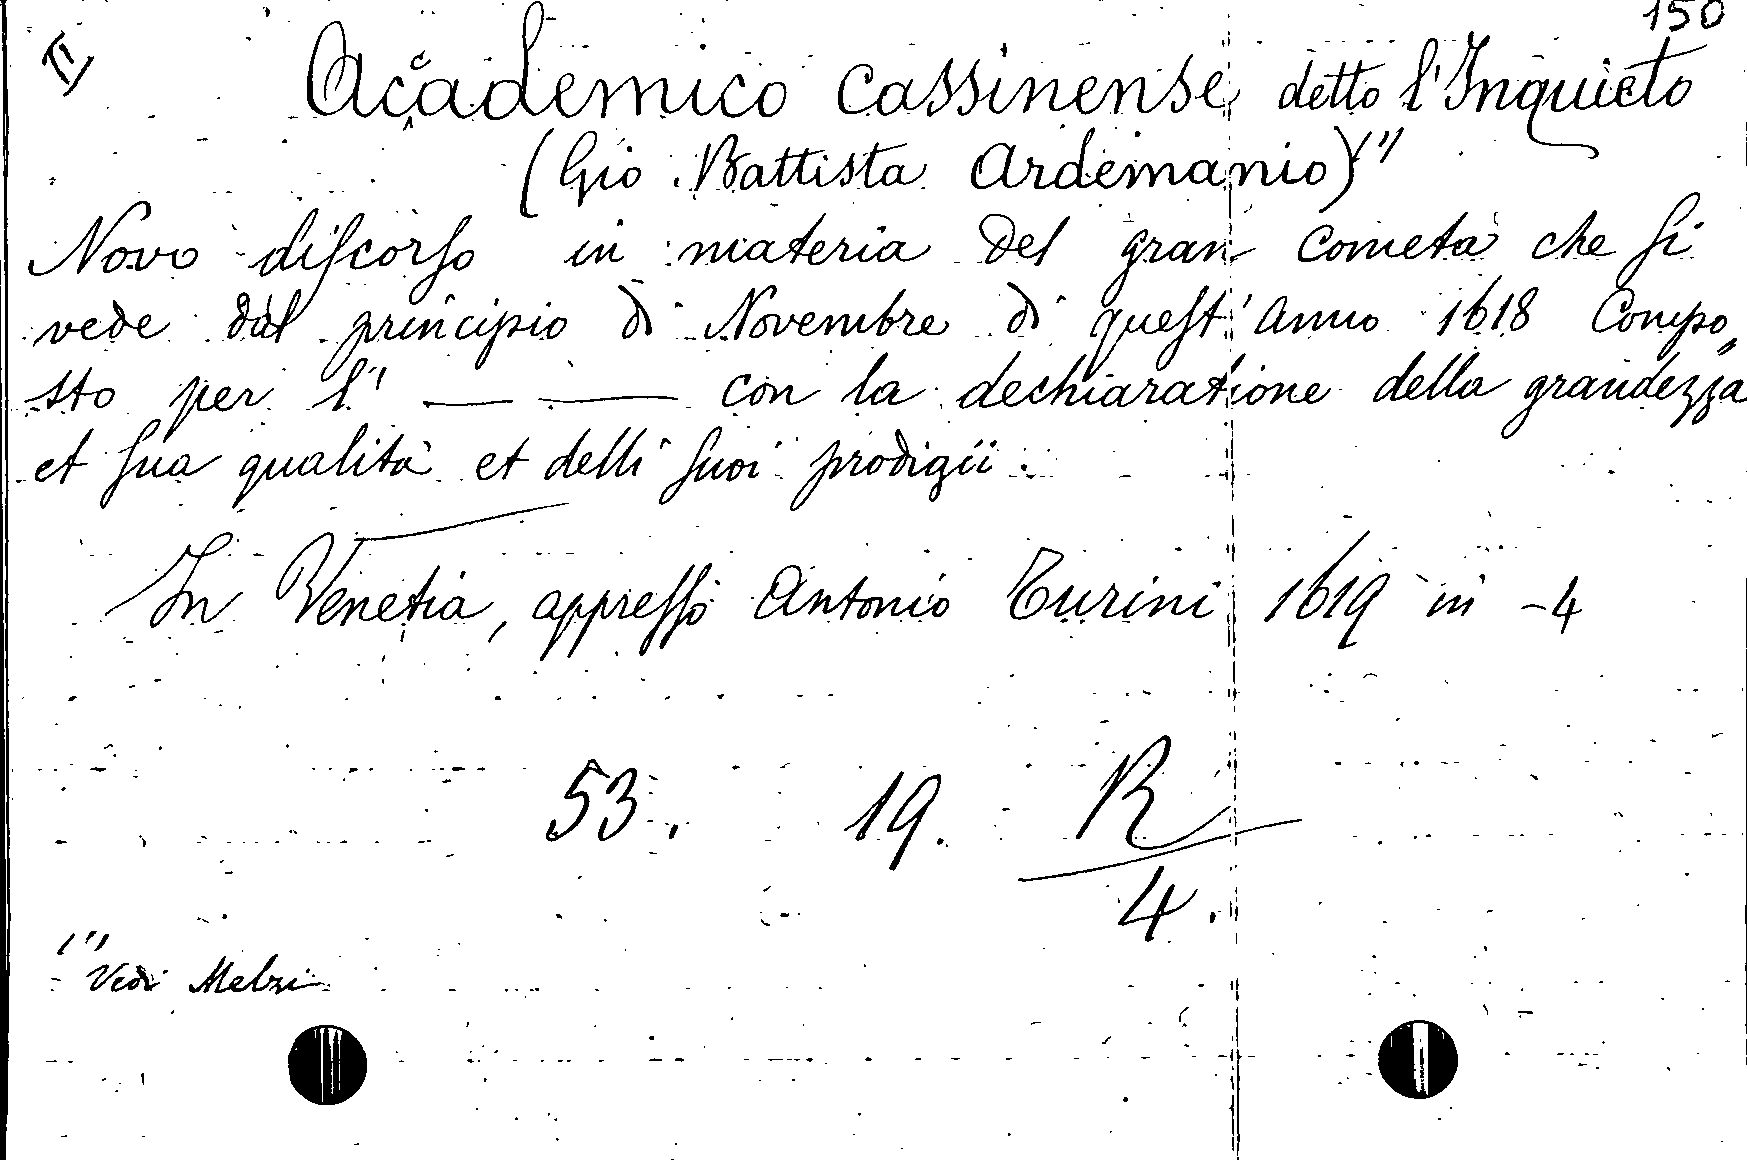 150
II
Accademico Cassinense detto l'Inquieto
(Gio Battista Ardemanio)"
Novo diſcorſo in materia del gran Cometa che ſi
vede dal principio di Novembre di queſt' Anno 1618 Compo„
sto per l' — — con la dechiaratione della grandezza
et ſua qualità et delli ſuoi prodigii.
In Venetia, appreſſo Antonio Turini 1619 in -4
53. 19. R
4.
Vedi Melzi